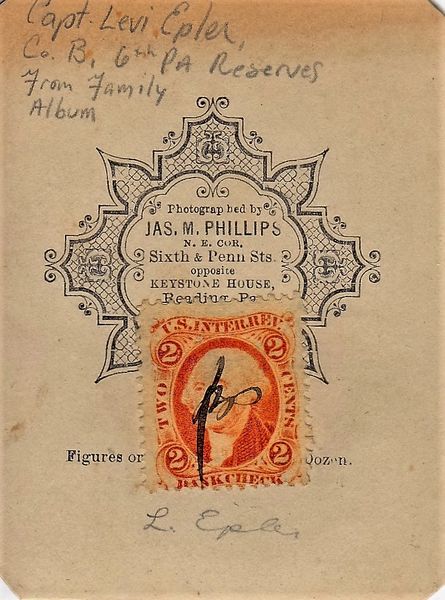 Capt. Levi Epler,
Co. B, 6th PA Reserves
From Family
Album
Photographed by
JAS. M. PHILLIPS
N. E. COR.
Sixth & Penn Sts.
opposite
KEYSTONE HOUSE,
Reading, Pa.
U.S. INTER. REV.
2 2
TWO CENTS
2 2
BANK CHECK
Figures or Dozen.
L. Epler